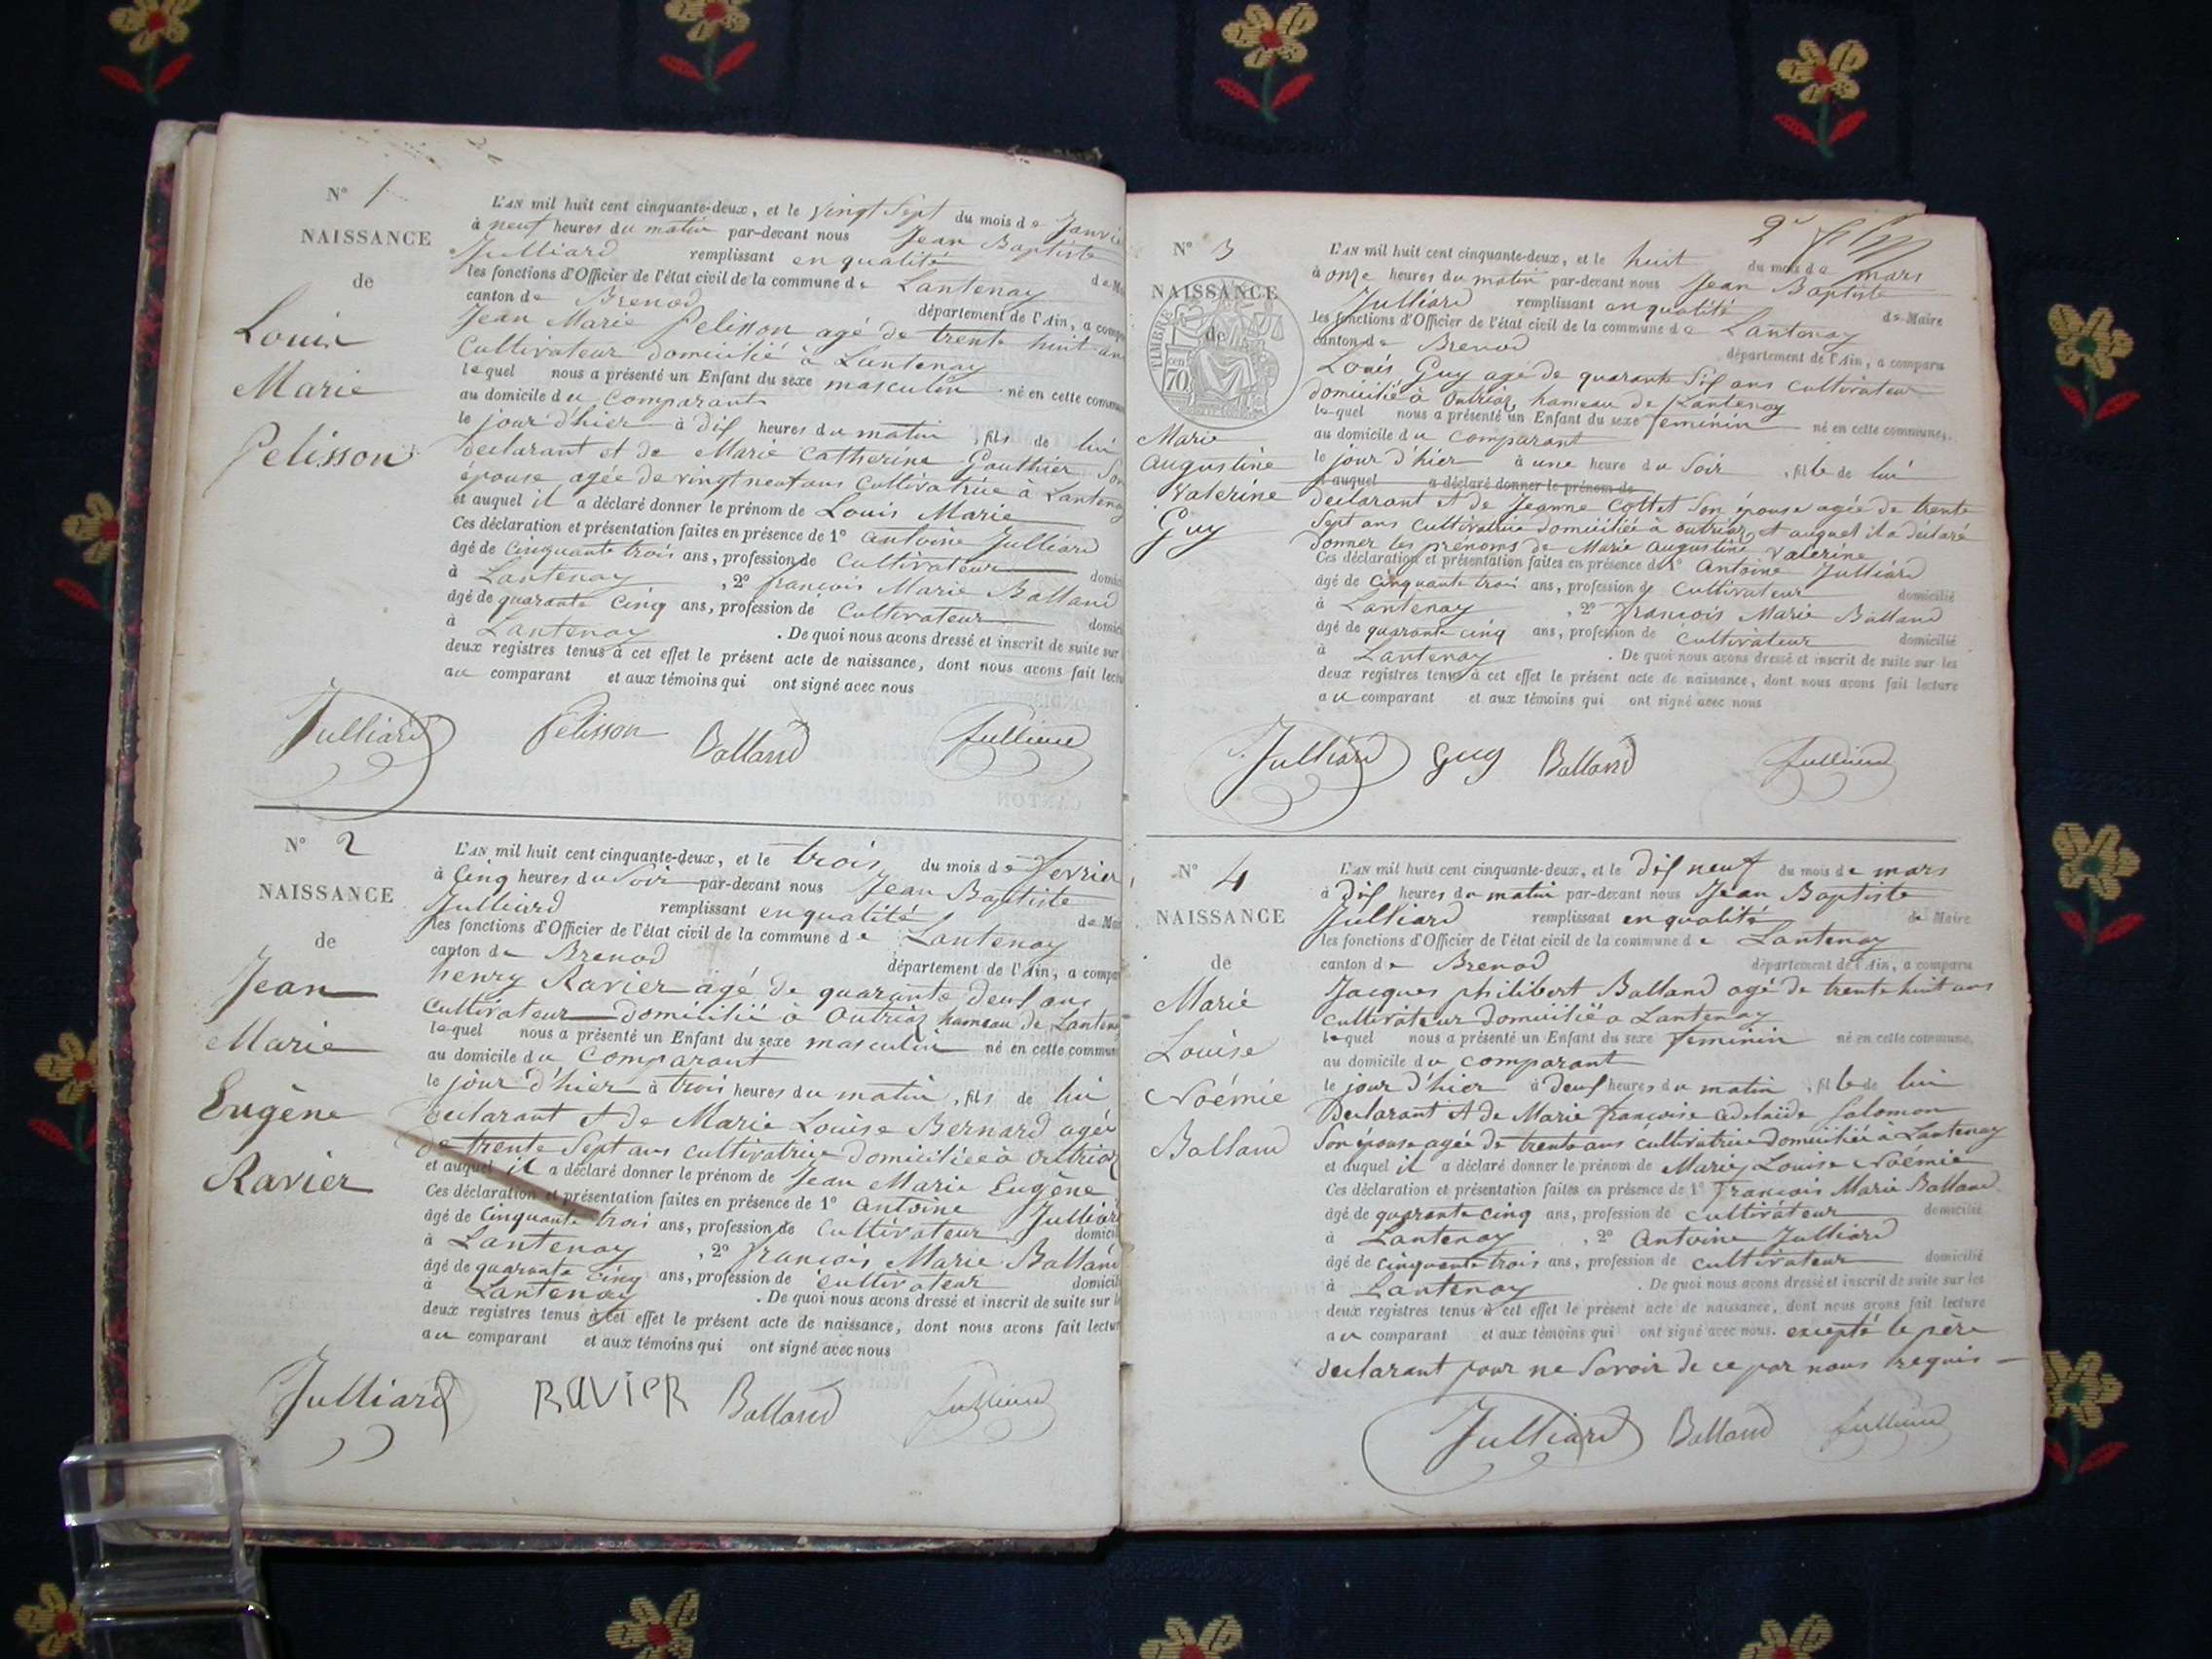 N° 1
NAISSANCE
de
Louis
Marie
Pelisson
L'AN mil huit cent cinquante-deux, et le vingt Sept du mois de Janvier
à neuf heures du matin par-devant nous Jean Baptiste
Julliard remplissant en qualité de
les fonctions d'Officier de l'état civil de la commune de Lantenay
canton de Brenod département de l'Ain, a
Jean Marie Pelisson agé de trente huit ans
Cultivateur domicilié à Lantenay
lequel nous a présenté un Enfant du sexe masculin né en cette
au domicile du Comparant
le jour d'hier à dix heures du matin, fils de lui
Declarant et de Marie Catherine Gauthier Son
épouse agée de vingt neuf ans Cultivatrice à Lantenay
et auquel il a déclaré donner le prénom de Louis Marie
Ces déclaration et présentation faites en présence de 1° Antoine Julliard
âgé de Cinquante trois ans, profession de Cultivateur
à Lantenay, 2° françois Marie Balland
âgé de quarante Cinq ans, profession de Cultivateur
à Lantenay. De quoi nous avons dressé et inscrit de suite sur
deux registres tenus à cet effet le présent acte de naissance, dont nous avons fait
au comparant et aux témoins qui ont signé avec nous
Julliard Pelisson Balland Julliard
N° 2
NAISSANCE
de
Jean
Marie
Eugène
Ravier
L'AN mil huit cent cinquante-deux, et le trois du mois de fevrier
à Cinq heures du Soir par-devant nous Jean Baptiste
Julliard remplissant en qualité de
les fonctions d'Officier de l'état civil de la commune de Lantenay
canton de Brenod département de l'Ain, a
henry Ravier agé de quarante deux ans
Cultivateur domicilié à Outriaz hameau de Lantenay
lequel nous a présenté un Enfant du sexe masculin né en cette
au domicile du Comparant
le jour d'hier à trois heures du matin, fils de lui
Declarant et de Marie Louise Bernard agée
de trente Sept ans cultivatrice domiciliée à Outriaz
et auquel il a déclaré donner le prénom de Jean Marie Eugène
Ces déclaration et présentation faites en présence de 1° Antoine Julliard
âgé de Cinquante trois ans, profession de Cultivateur
à Lantenay, 2° françois Marie Balland
âgé de quarante cinq ans, profession de cultivateur
à Lantenay. De quoi nous avons dressé et inscrit de suite sur
deux registres tenus à cet effet le présent acte de naissance, dont nous avons fait
au comparant et aux témoins qui ont signé avec nous
Julliard RAVIER Balland Julliard
N° 3
NAISSANCE
de
TIMBRE
70
Marie
Augustine
Valerine
Guy
L'AN mil huit cent cinquante-deux, et le huit du mois de mars
à onze heures du matin par-devant nous Jean Baptiste
Julliard remplissant en qualité de Maire
les fonctions d'Officier de l'état civil de la commune de Lantenay
canton de Brenod département de l'Ain, a comparu
Louis Guy agé de quarante Six ans cultivateur
domicilié à Outriaz hameau de Lantenay
lequel nous a présenté un Enfant du sexe feminin né en cette commune,
au domicile du comparant
le jour d'hier à une heure du Soir, fille de lui
et auquel a déclaré donner le prénom de
declarant et de Jeanne Cottet Son épouse agée de trente
Sept ans cultivatrice domiciliée à outriaz, et auquel il a déclaré
donner les prénoms de Marie augustine Valerine
Ces déclaration et présentation faites en présence de 1° Antoine Julliard
âgé de Cinquante trois ans, profession de Cultivateur domicilié
à Lantenay, 2° françois Marie Balland
âgé de quarante cinq ans, profession de cultivateur domicilié
à Lantenay. De quoi nous avons dressé et inscrit de suite sur les
deux registres tenus à cet effet le présent acte de naissance, dont nous avons fait lecture
au comparant et aux témoins qui ont signé avec nous
Julliard Guy Balland Julliard
N° 4
NAISSANCE
de
Marie
Louise
Noémie
Balland
L'AN mil huit cent cinquante-deux, et le dix neuf du mois de mars
à dix heures du matin par-devant nous Jean Baptiste
Julliard remplissant en qualité de Maire
les fonctions d'Officier de l'état civil de la commune de Lantenay
canton de Brenod département de l'Ain, a comparu
Jacques philibert Balland agé de trente huit ans
cultivateur domicilié à Lantenay
lequel nous a présenté un Enfant du sexe feminin né en cette commune,
au domicile du comparant
le jour d'hier à deux heures du matin, fille de lui
Declarant et de Marie françoise adelaïde Salomon
Son épouse agée de trente ans cultivatrice domiciliée à Lantenay
et auquel il a déclaré donner le prénom de Marie Louise Noémie
Ces déclaration et présentation faites en présence de 1° françois Marie Balland
âgé de quarante cinq ans, profession de cultivateur domicilié
à Lantenay, 2° Antoine Julliard
âgé de cinquante trois ans, profession de cultivateur domicilié
à Lantenay. De quoi nous avons dressé et inscrit de suite sur les
deux registres tenus à cet effet le présent acte de naissance, dont nous avons fait lecture
au comparant et aux témoins qui ont signé avec nous. excepté le père
declarant pour ne Savoir de ce par nous requis
Julliard Balland Julliard